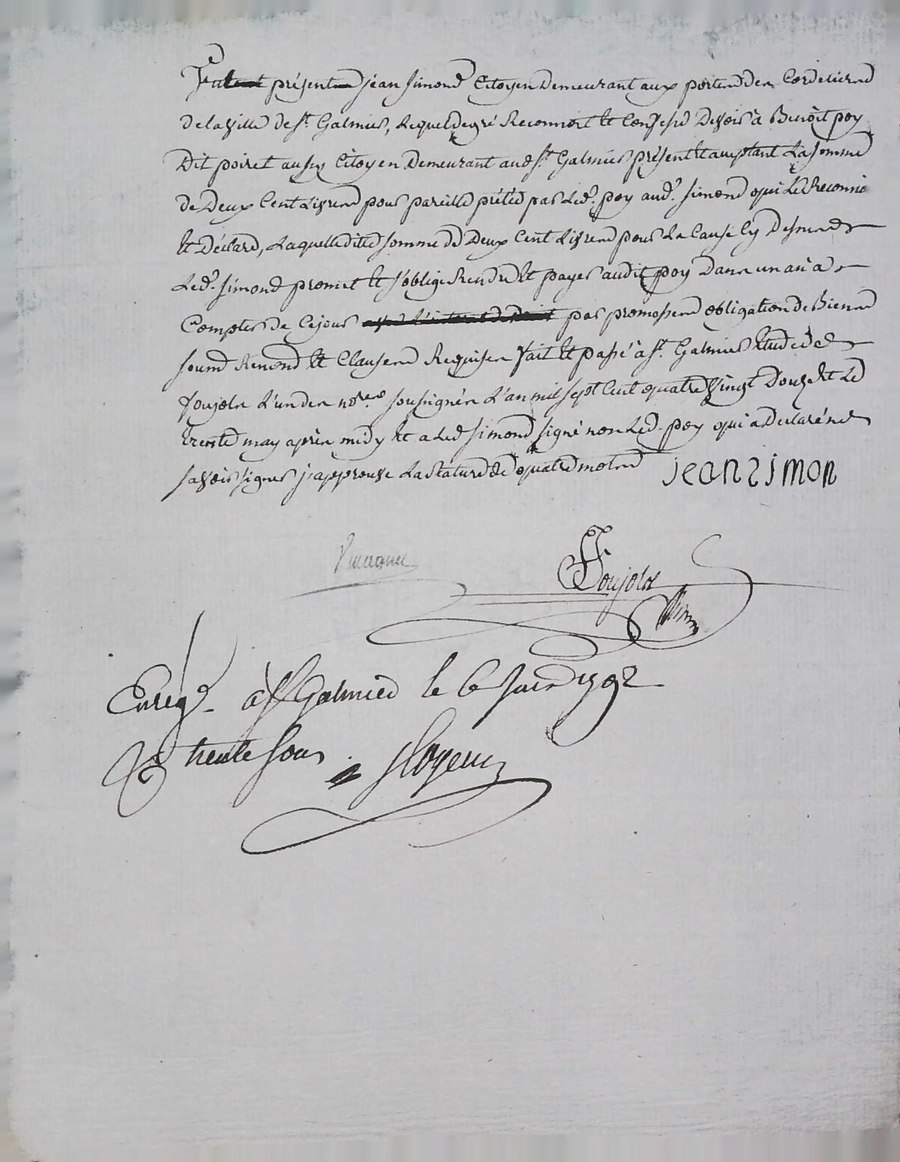 Fut présent jean Simond Citoyen demeurant aux portes des Cordeliers
de la Ville de St. Galmier, Lequel de gré Reconnoit et Confesse Devoir à Benoît poy
Dit poiret aussy Citoyen demeurant aud. St. Galmier présent et acceptant La somme
de Deux Cent Livres pour pareille prétée par Led. poy aud. Simond qui Le Reconnoi
et Déclare, Laquelle dite somme de Deux Cent Livres pour La Cause Cy Dessus
Led. Simond promet et s'oblige Rendre et payer audit poy Dans un an à
Compter de Cejour par promesses obligation de Biens
soumi Renond et Clauses Requises fait et passé à St. Galmier Etude de
Joujols L'un des nores. soussignés L'an mil sept Cent quatre Vingt Douze et Le
trente may après midy et a Led. Simond signé non Led. poy qui a Declaré ne
savoir signer j'approuve La Rature de quatre mots jean simon
Joujols
Enregé. à St Galmier le 6 Juin 1792
trente sous